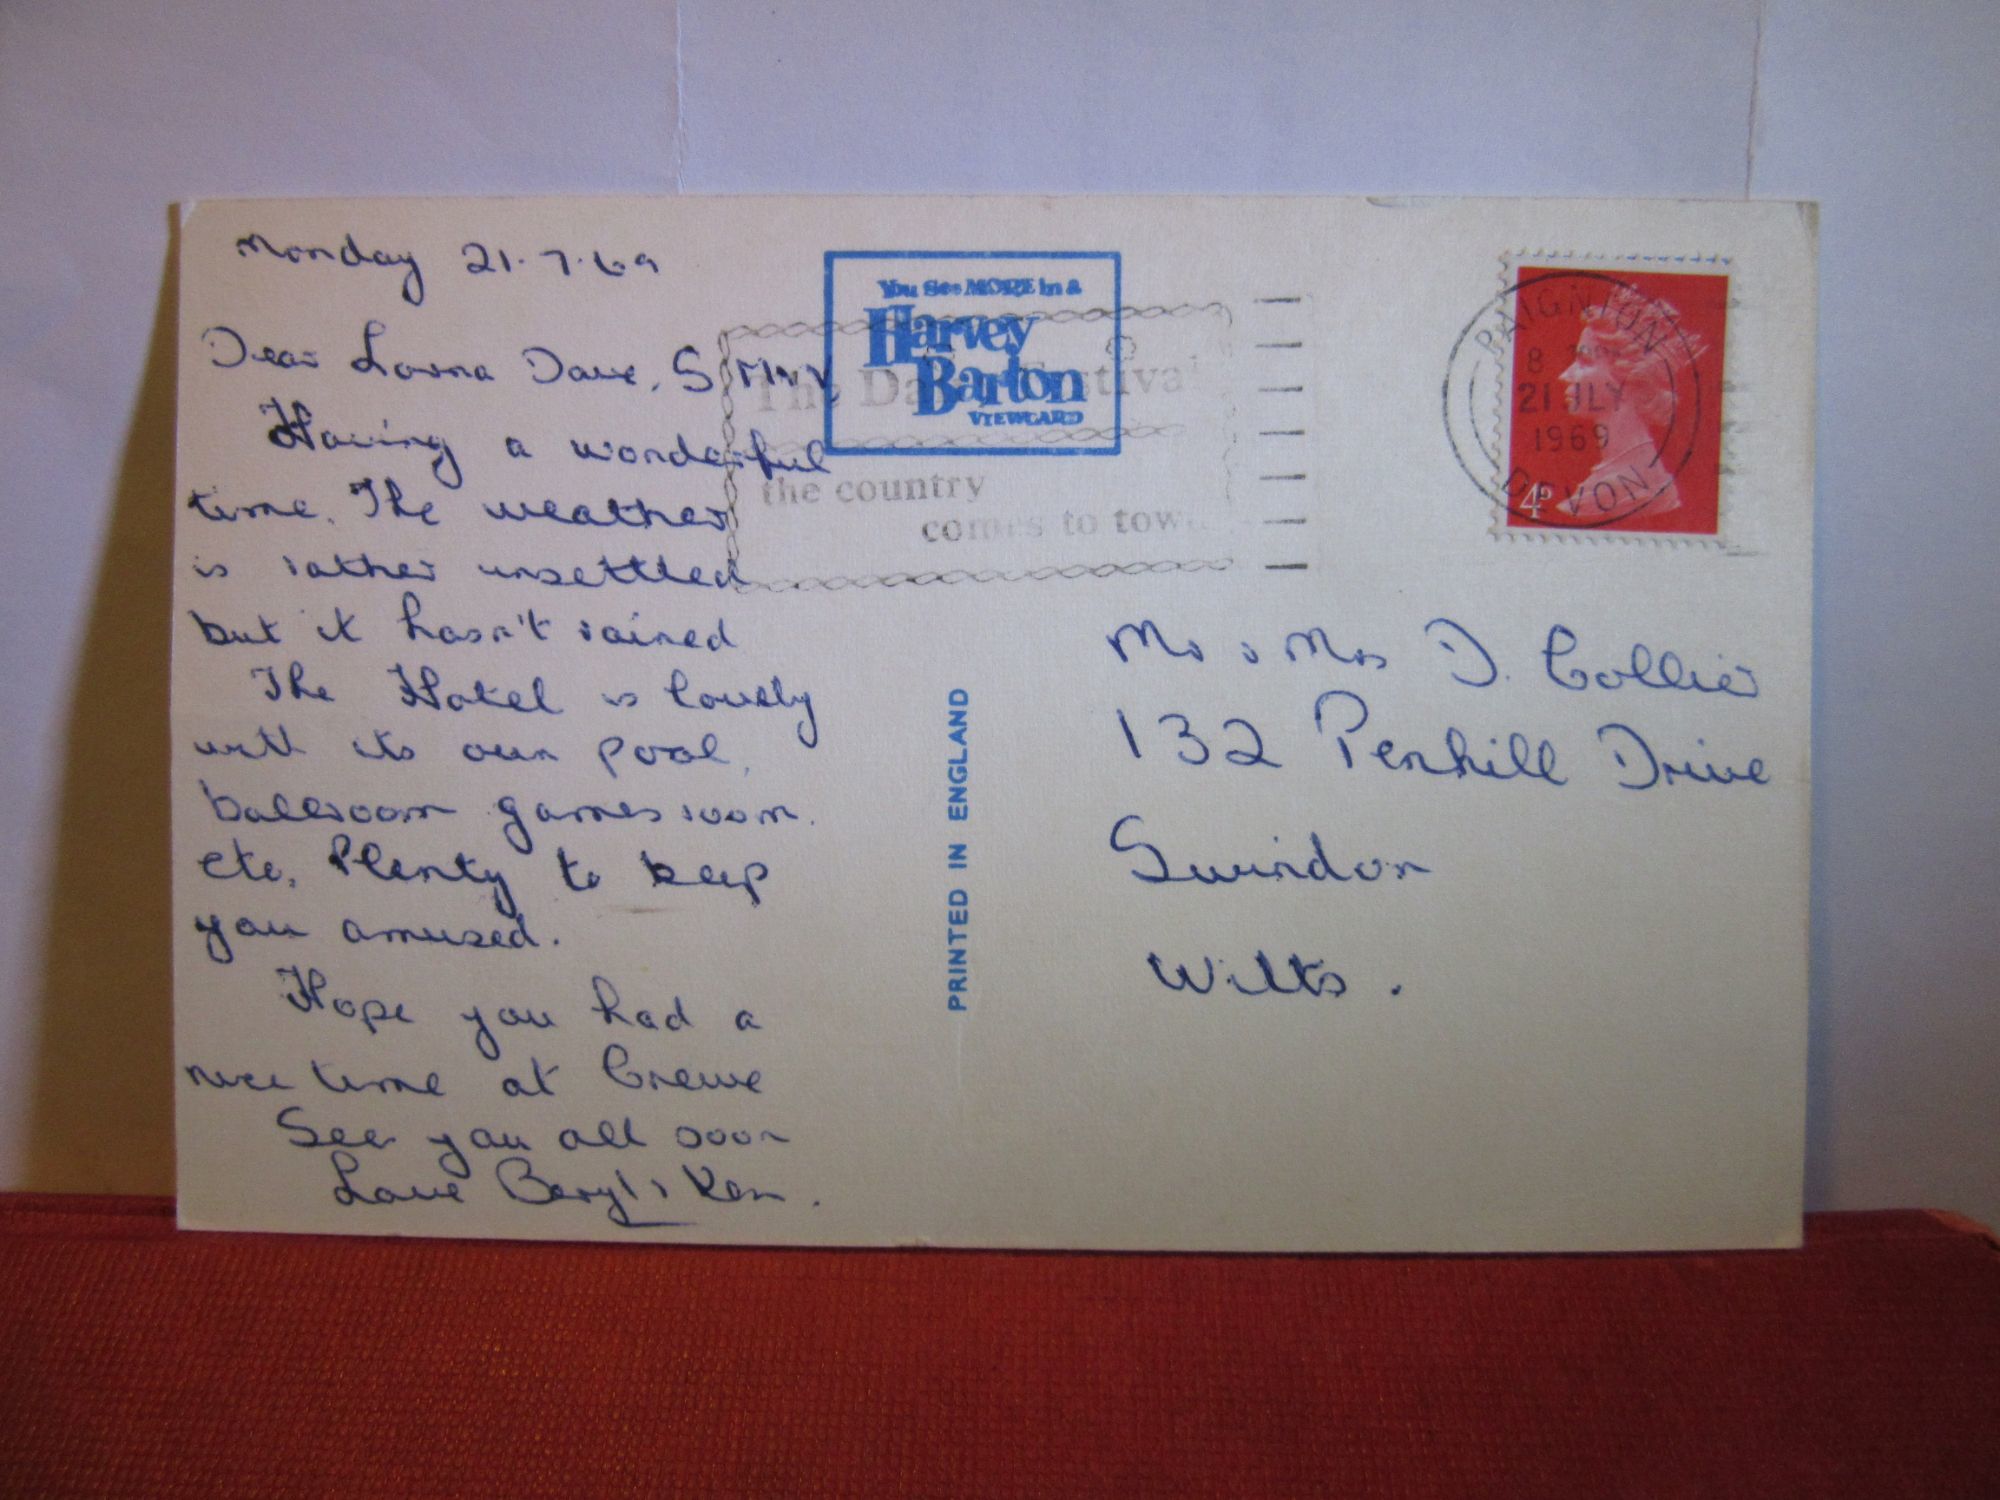 Monday 21.7.69
Dear Lorna Dave, S
Having a wonderful
time. The weather
is rather unsettled
but it hasn't rained
The Hotel is lovely
with its own pool,
ballroom games room.
etc. Plenty to keep
you amused.
Hope you had a
nice time at Crewe
See you all soon
Love Beryl & Ken.
You See MORE in a
Harvey
Barton
VIEWCARD
The Dairy Festival
the country
comes to town
PRINTED IN ENGLAND
PAIGNTON
8
21 JLY
1969
DEVON
4P
Mr & Mrs D. Collier
132 Penhill Drive
Swindon
Wilts.